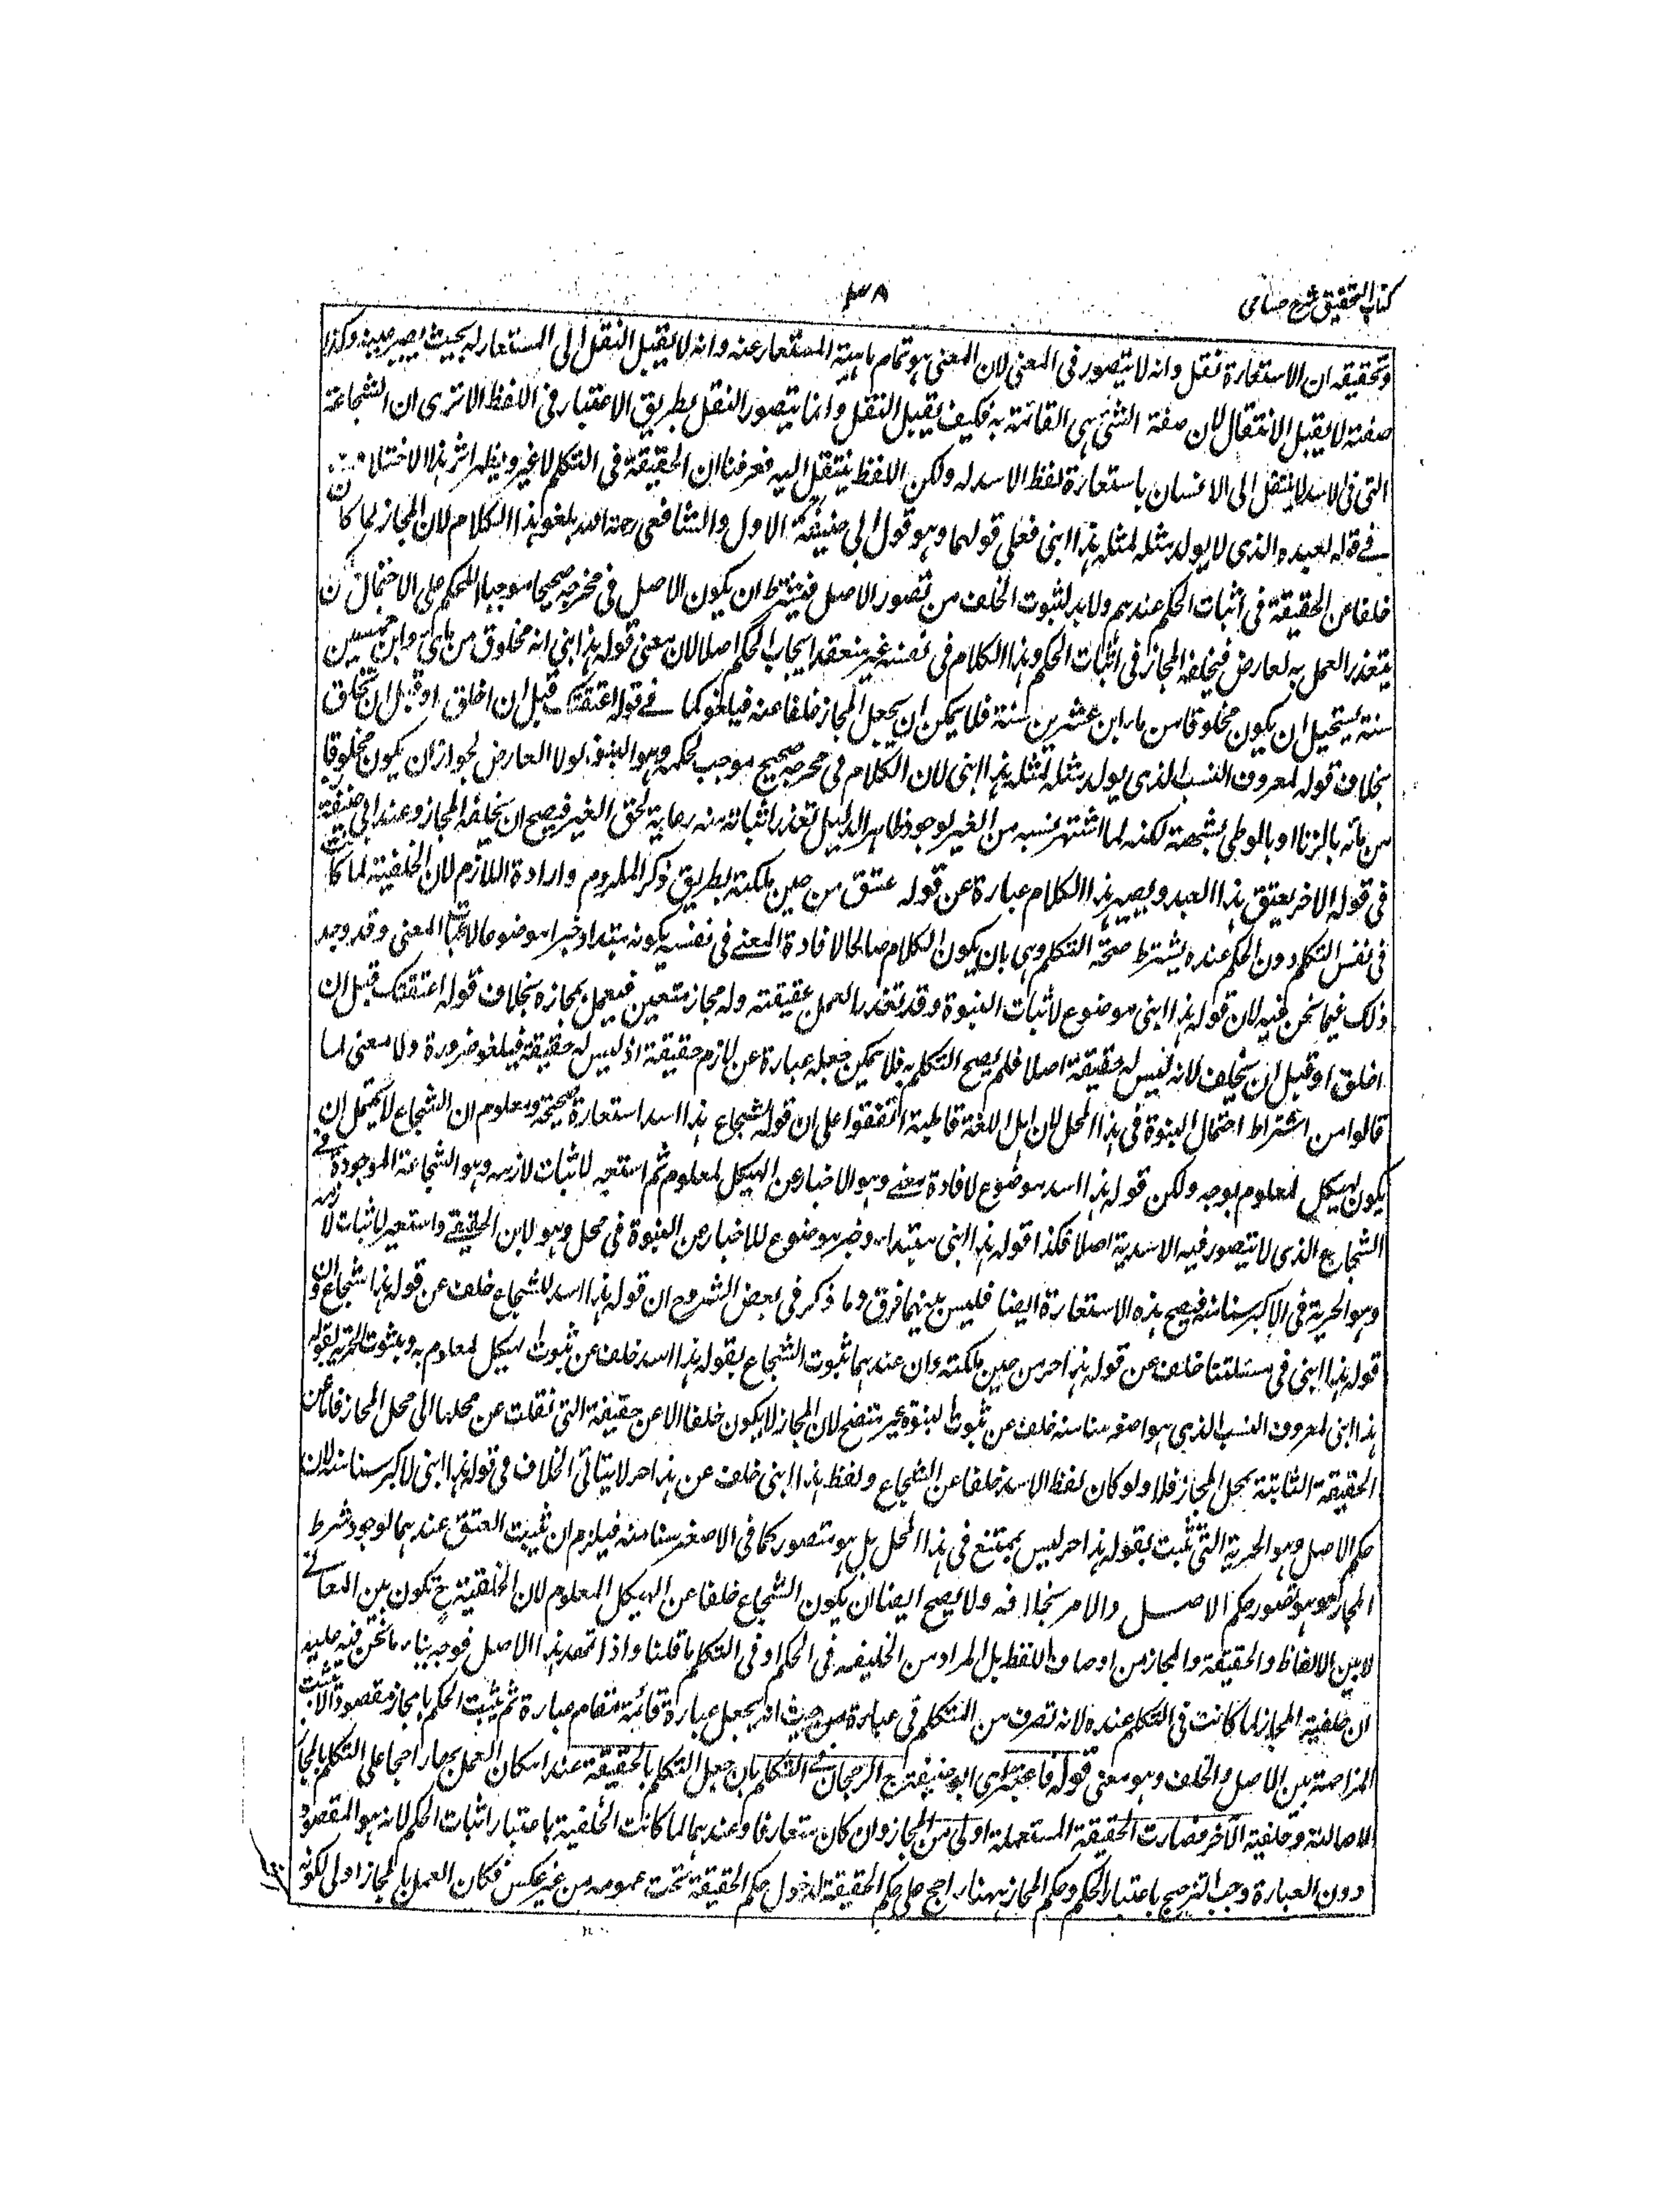 كتاب التحقيق شرح حسامى
٣٨
وتحقيقه ان الاستعارة نقل وانه لا يتصور فى المعنى لان المعنى هو تمام ماهية المستعار عنه وانه لا يقبل النقل الى المستعار له بحيث يصير عينه وكذا
صفته لا يقبل الانتقال لان صفة الشئ هى القائمة به فكيف يقبل النقل وانما يتصور النقل بطريق الاعتبار فى اللفظ الا ترى ان الشجاعة
التى فى الاسد لا ينتقل الى الانسان باستعارة لفظ الاسد له ولكن اللفظ ينتقل اليه فعرفنا ان الحقيقة فى التكلم لا غير ويظهر اثر هذا الاختلاف
فے قوله لعبده الذى لا يولد مثله لمثله هذا ابنى فعلى قولهما وهو قول ابى حنيفة الاول والشافعى رحمة الله يلغو هذا الكلام لان المجاز لما كان
خلفا عن الحقيقة فى اثبات الحكم عندهم ولا بد لثبوت الخلف من تصور الاصل فيشترط ان يكون الاصل فى مخرجه صحيحا موجبا للحكم على الاحتمال
يتعذر العمل به لعارض فيخلفه المجاز فى اثبات الحكم وهذا الكلام فى نفسه غير منعقد لايجاب الحكم اصلا لان معنى قوله هذا ابنى انه مخلوق من مائى وابن خمسين
سنة يستحيل ان يكون مخلوقا من ماء ابن عشرين سنة فلا يمكن ان يجعل المجاز خلفا عنه فيلغو كما فے قوله اعتقتك قبل ان اخلق او قبل ان تخلق
بخلاف قوله لمعروف النسب الذى يولد مثله لمثله هذا ابنى لان الكلام فى مخرجه صحيح موجب لحكمه وهو البنوة لولا العارض لجواز ان يكون مخلوقا
من مائه بالزنا او بالوطى بشبهة لكنه لما اشتهر نسبه من الغير لوجود ظاهر الدليل تعذر اثباته منه رعاية لحق الغير فيصح ان يخلفه المجاز وعند ابى حنيفة
فى قوله الاخر يعتق هذا العبد ويصير هذا الكلام عبارة عن قوله عتق من حين ملكته بطريق ذكر الملزوم وارادة اللازم لان الخلفية لما كانت
فى نفس التكلم دون الحكم عنده يشترط صحة التكلم وهى بان يكون الكلام صالحا لافادة المعنے فى نفسه بكونه مبتدا وخبرا موضوعا لاثبات المعنى وقد وجد
ذلك فيما نحن فيه لان قوله هذا ابنى موضوع لاثبات البنوة وقد تعذر العمل بحقيقته وله مجاز متعين فيعمل بمجازه بخلاف قوله اعتقتك قبل ان
اخلق او قبل ان تخلق لانه ليس له حقيقة اصلا فلم يصح التكلم به فلا يمكن جعله عبارة عن لازم حقيقة اذ ليس له حقيقة فيلغو ضرورة ولا معنى لما
قالوا من اشتراط احتمال البنوة فى هذا المحل لان اهل اللغة قاطبة اتفقوا على ان قوله لشجاع هذا اسد استعارة صحيحة ومعلوم ان الشجاع لا يحتمل ان
يكون الهيكل المعلوم بوجه ولكن قوله هذا اسد موضوع لافادة معنے وهو الاخبار عن الهيكل المعلوم ثم استعير لاثبات لازمه وهو الشجاعة الموجودة فے
الشجاع الذى لا يتصور فيه الاسدية اصلا فكذا قوله هذا ابنى مبتداء وخبر موضوع للاخبار عن البنوة فى محل وهو الابن الحقيقے واستعير لاثبات لازمه
وهو الحرية فى الاكبر سنا منه فيصح هذه الاستعارة ايضا فليس بينهما فرق وما ذكر فى بعض الشروح ان قوله هذا اسد لشجاع خلف عن قوله هذا شجاع وان
قوله هذا ابنى فى مسئلتنا خلف عن قوله هذا حر من حين ملكته وان عندهما ثبوت الشجاع بقوله هذا اسد خلف عن ثبوت الهيكل المعلوم به وثبوت الحرية بقوله
هذا ابنى لمعروف النسب الذى هو اصغر سنا منه خلف عن ثبوت البنوة غير متضح لان المجاز لا يكون خلفا الا عن حقيقة التى نقلت عن محلها الى محل المجاز فاما عن
الحقيقة الثابتة بمحل المجاز فلا ولو كان لفظ الاسد خلفا عن الشجاع ولفظ هذا ابنى خلف عن هذا حر لا يتأتى الخلاف فى قوله هذا ابنى لاكبر سنا منه لان
حكم الاصل وهو الحرية التى تثبت بقوله هذا حر ليس بممتنع فى هذا المحل بل هو متصور كما فى الاصغر سنا منه فيلزم ان يثبت العتق عندهما لوجود شرط
المجاز وهو تصور حكم الاصل والامر بخلافه ولا يصح ايضا ان يكون الشجاع خلفا عن الهيكل المعلوم لان الخلفية ح تكون بين المعانے
لا بين الالفاظ والحقيقة والمجاز من اوصاف اللفظ بل المراد من الخلفية فى الحكم او فى التكلم ما قلنا واذا تمهد هذا الاصل فوجه بناء ما نحن فيه عليه
ان خلفية المجاز لما كانت فى التكلم عنده لانه تصرف من المتكلم فى عبارة من حيث انه يجعل عبارة قائمة مقام عبارة ثم يثبت الحكم بالمجاز مقصودا لا تثبت
المزاحمة بين الاصل والخلف وهو معنى قوله فاعتبر اى ابو حنيفة رح الرجحان فے التكلم بان جعل التكلم بالحقيقة عند امكان العمل به راجحا على التكلم بالمجاز
الاصالته وخلفية الآخر فصارت الحقيقة المستعملة اولى من المجاز وان كان متعارفا وعندهما لما كانت الخلفية باعتبار اثبات الحكم لانه هو المقصود
دون العبارة وجب الترجيح باعتبار الحكم وحكم المجاز ههنا راجح على حكم الحقيقة لدخول حكم الحقيقة تحت عمومه من غير عكس فكان العمل بالمجاز اولى لكونه